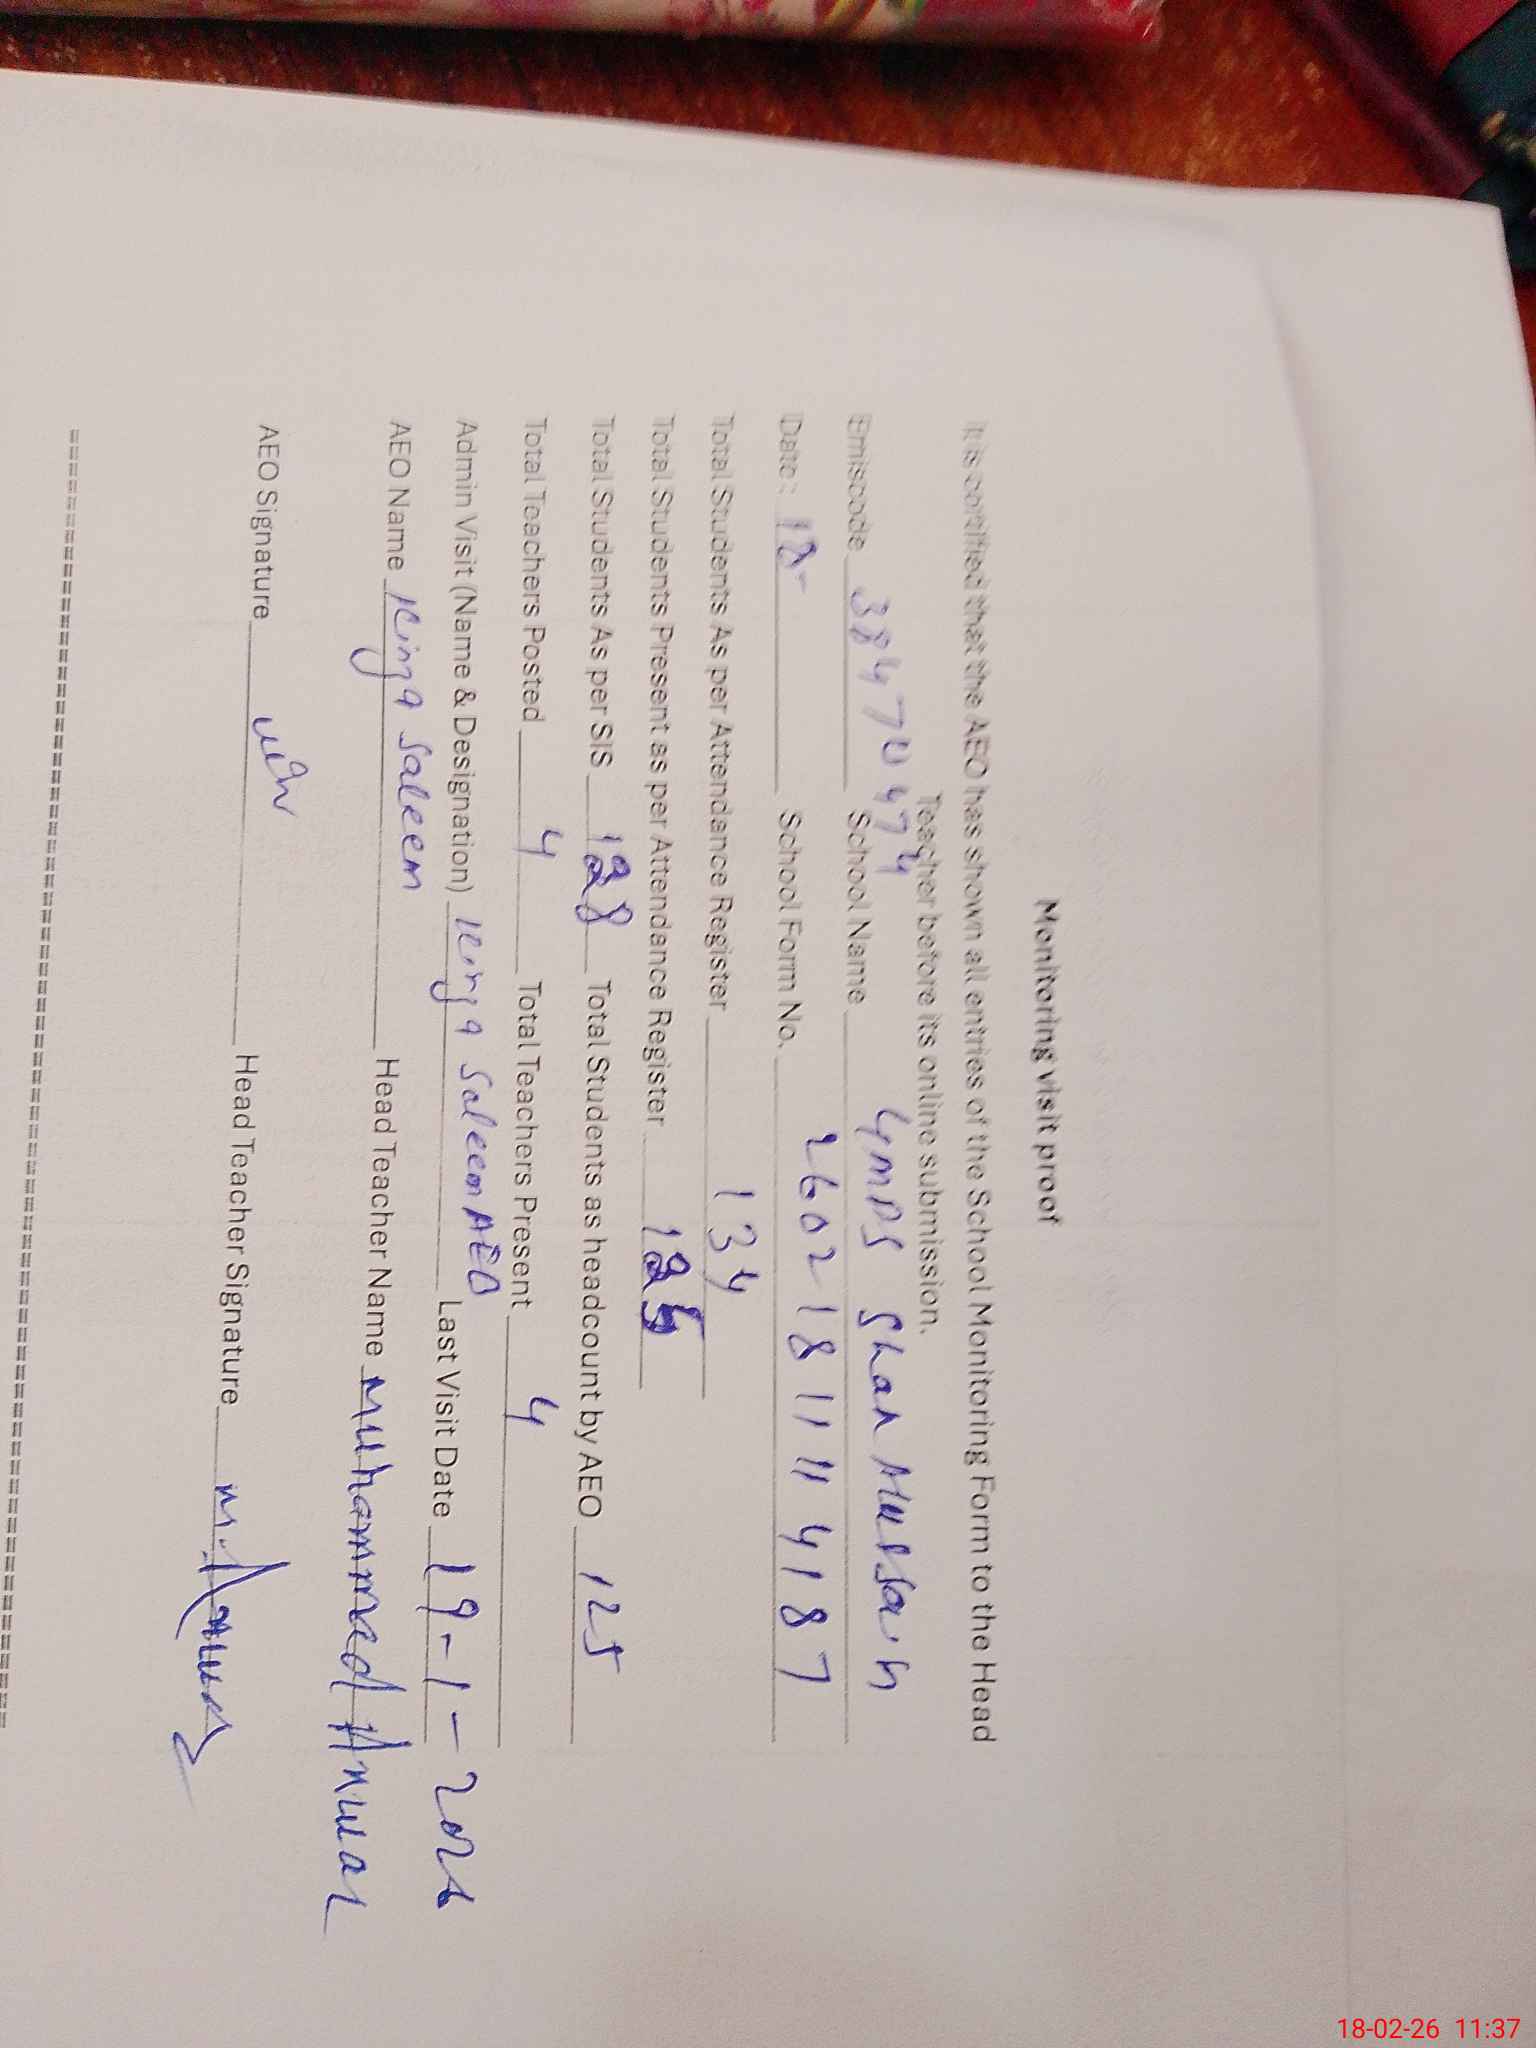 Monitoring visit proof
It is certified that the AEO has shown all entries of the School Monitoring Form to the Head
Teacher before its online submission.
Emiscode 38470474 School Name GMPS Shah Hussain
Date: 18- School Form No. 26021811114187
Total Students As per Attendance Register 134
Total Students Present as per Attendance Register 125
Total Students As per SIS 128 Total Students as headcount by AEO 125
Total Teachers Posted 4 Total Teachers Present 4
Admin Visit (Name & Designation) Kinza Saleem AEO Last Visit Date 19-1-2026
AEO Name Kinza Saleem Head Teacher Name Muhammad Anwar
AEO Signature Head Teacher Signature M. Anwar
18-02-26 11:37